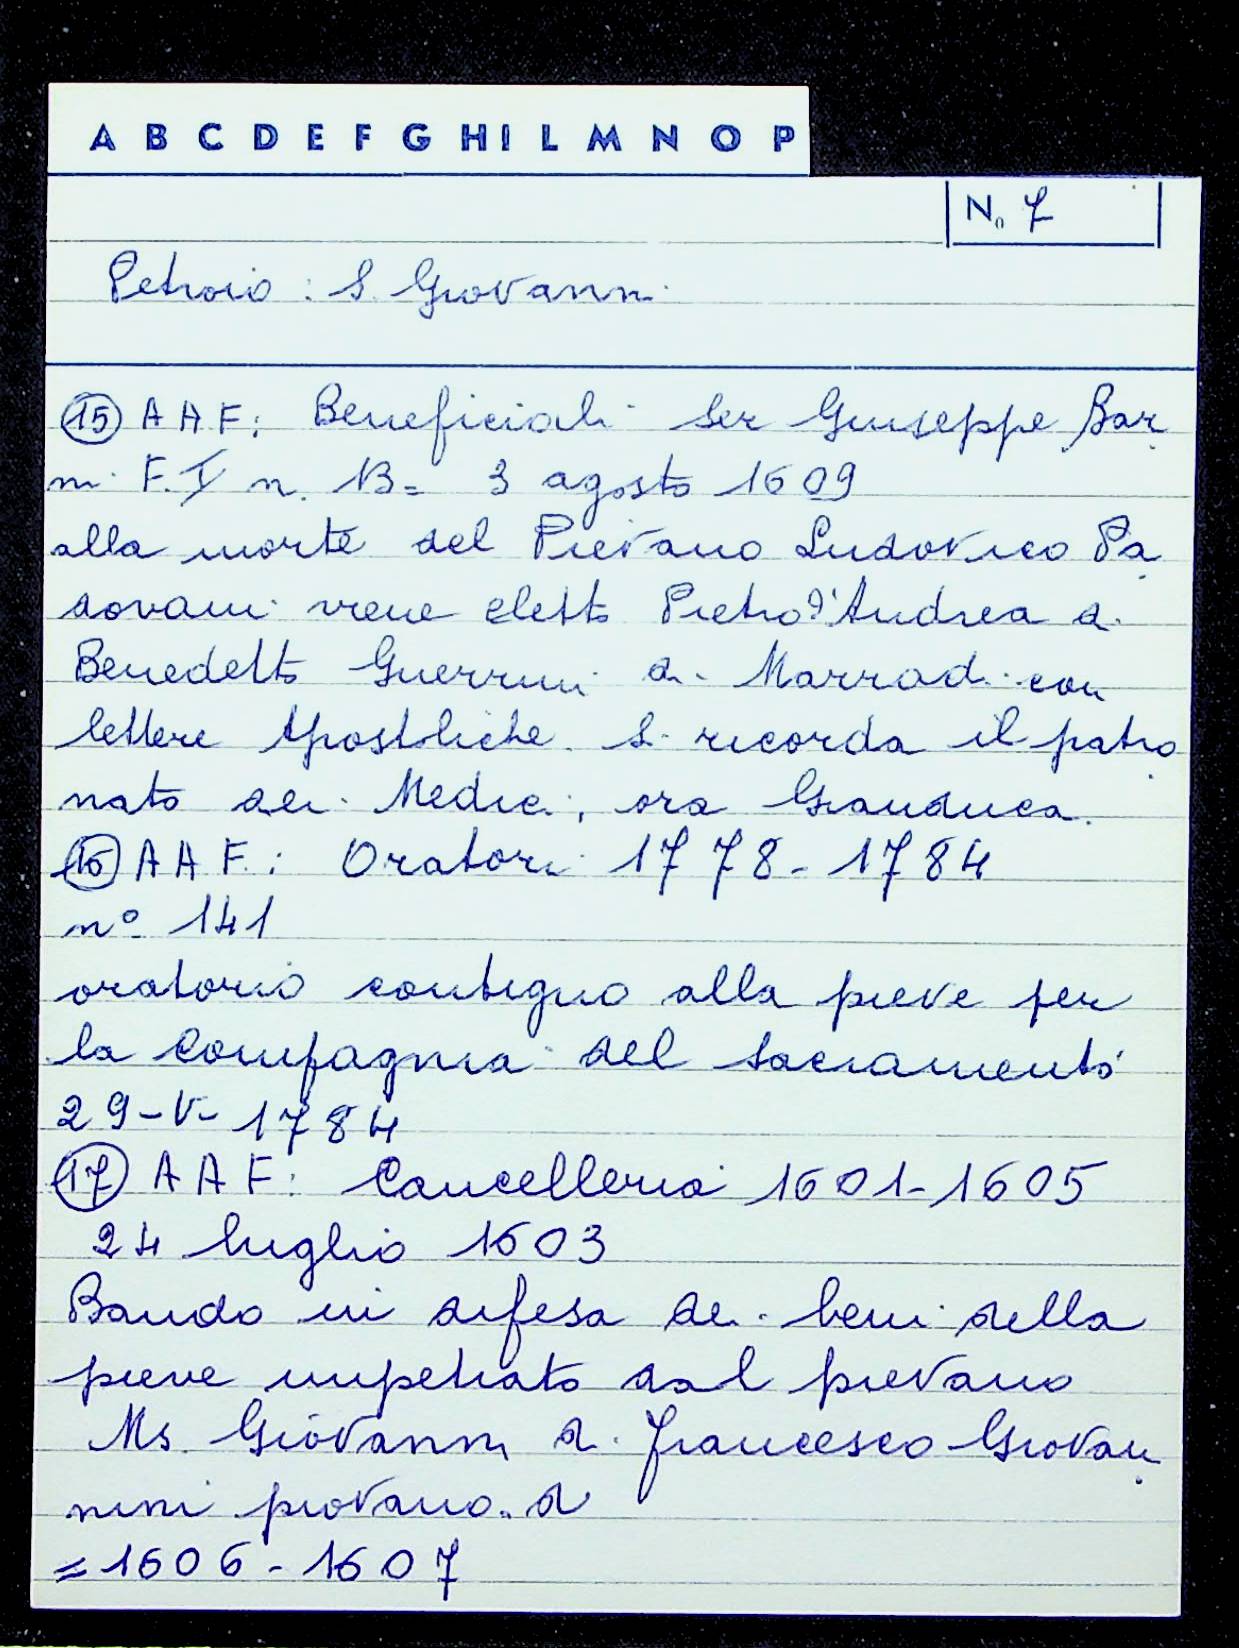 A B C D E F G H I L M N O P
N. 7
Petroio : S. Giovanni
15 A A F: Beneficiali Ser Giuseppe Bar
ni F. I n. 13= 3 agosto 1609
alla morte del Pievano Ludovico Pa
dovani viene eletto Pietro d'Andrea di
Benedetto Guerrini di Marradi con
lettere Apostoliche. Si ricorda il patro
nato dei Medici, ora Granduca.
16 A A F.: Oratori 1778-1784
n° 141
oratorio contiguo alla pieve per
la Compagnia del Sacramento
29-V-1784
17 A A F: Cancelleria 1601-1605
24 luglio 1603
Bando in difesa dei beni della
pieve impetrato dal pievano
Ms. Giovanni di Francesco Giovan
nini piovano. di
=1606-1607